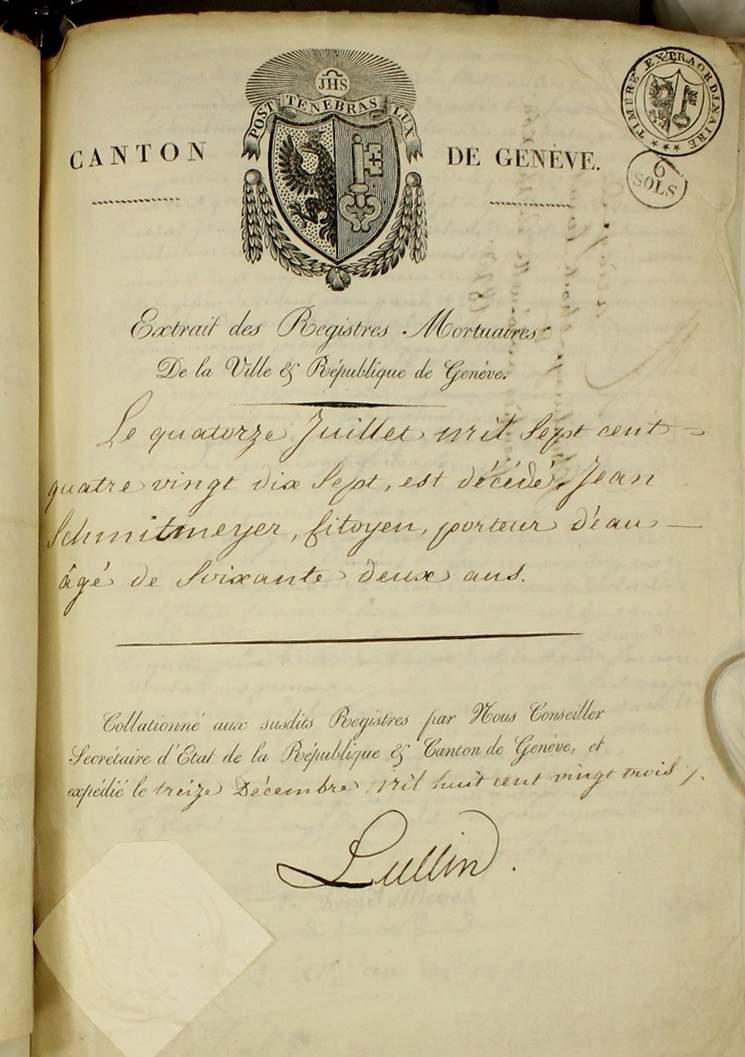 JHS
POST TENEBRAS LUX
TIMBRE EXTRAORDINAIRE
CANTON DE GENÈVE.
6
SOLS
Extrait des Registres Mortuaires
De la Ville & République de Genève.
Le quatorze Juillet mil Sept cent
quatre vingt dix Sept, est décédé, Jean
Schmitmeyer, Citoyen, porteur d'eau
âgé de Soixante deux ans.
Collationné aux susdits Registres par Nous Conseiller
Secrétaire d'Etat de la République & Canton de Genève, et
expédié le treize Décembre mil huit cent vingt trois
Lullin.